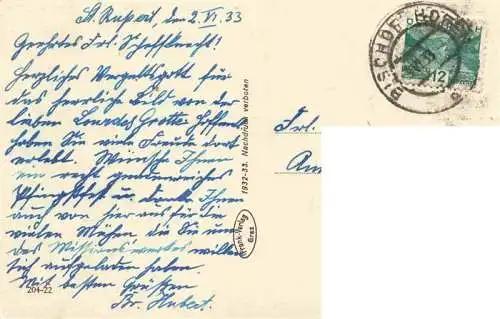 St. Rupert, den 2. VI. 33
Geehrtes Frl. Scheffknecht!
Herzliches Vergeltsgott für
das herrliche Bild von der
lieben Lourdes Grotte. Hoffentl.
haben Sie viele Freude dort
erlebt. Wünsche Ihnen
ein recht gnadenreiches
Pfingstfest u. danke Ihnen
auch von hier aus für die
vielen Mühen, die Sie um
des Missionswerkes willen
sich aufgeladen haben.
Mit besten Grüßen
Br. Hubert.
204-22
1932-33. Nachdruck verboten
Frank-Verlag
Graz
BISCHOFSHOFEN
12
Frl.
An